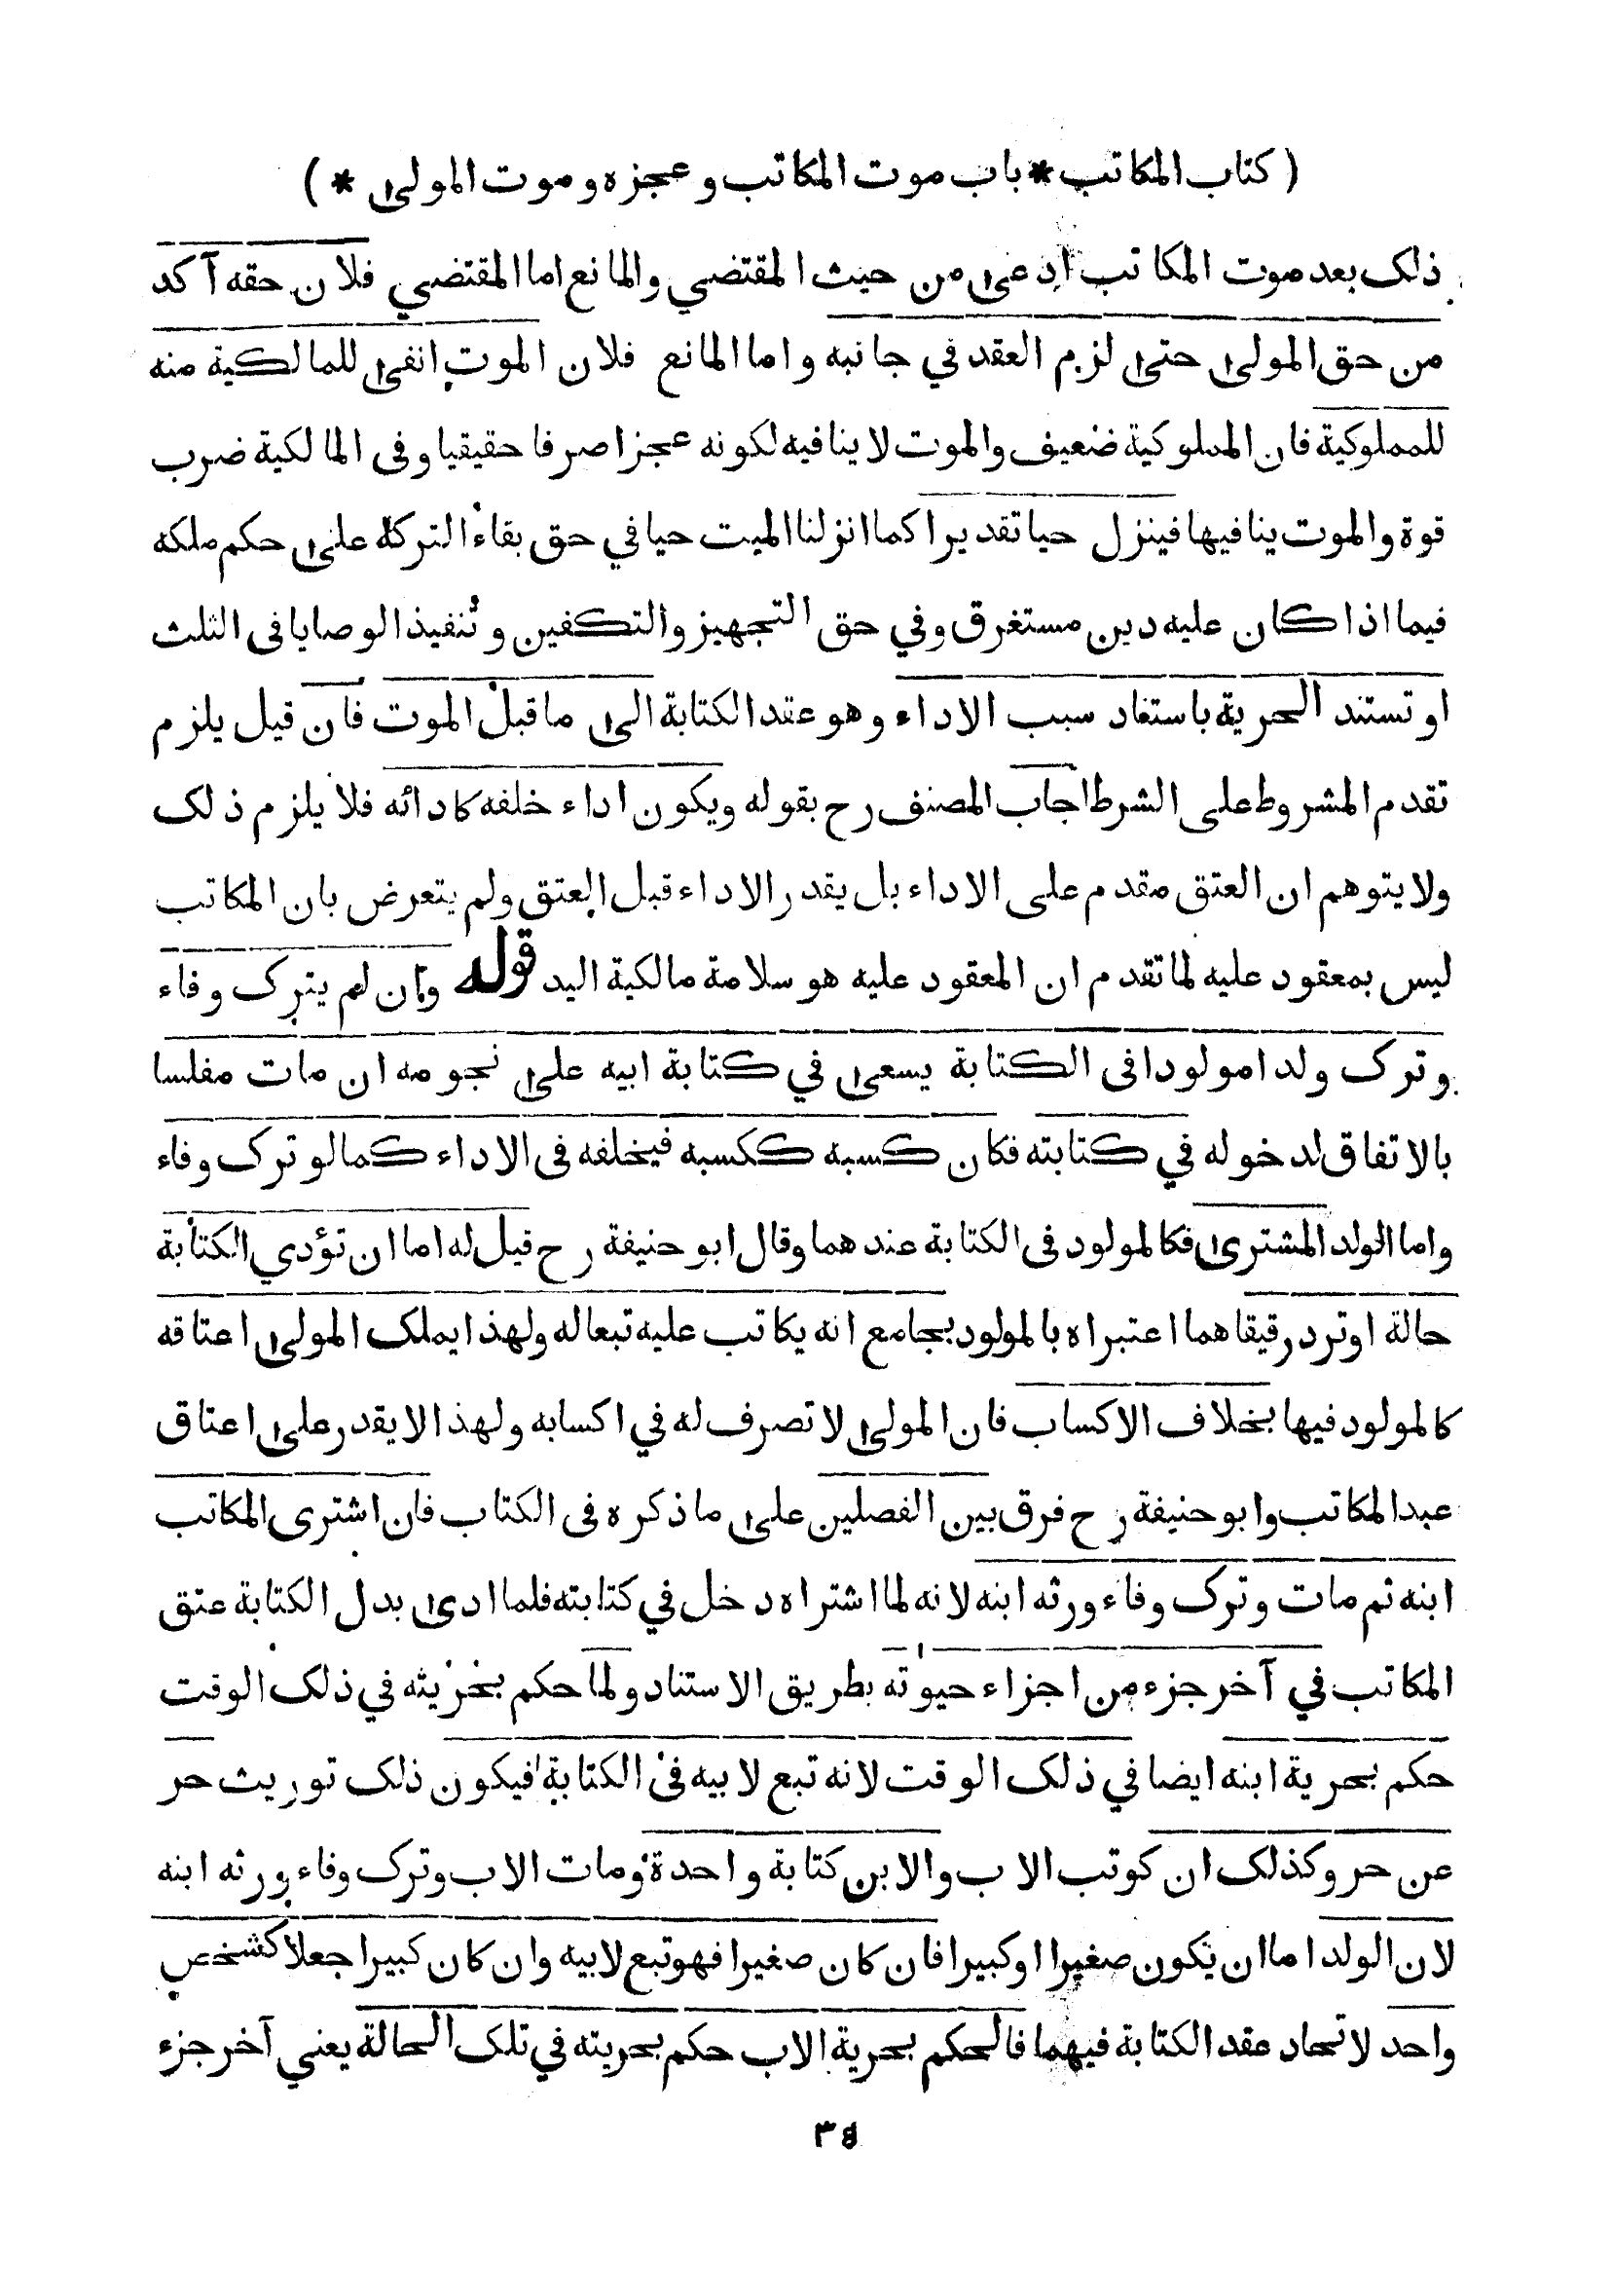 ( كتاب المكاتب * باب موت المكاتب وعجزه وموت المولى * )
ذلك بعد موت المكاتب ادعى من حيث المقتضي والمانع اما المقتضي فلان حقه آكد
من حق المولى حتى لزم العقد في جانبه واما المانع فلان الموت انفى للمالكية منه
للمملوكية فان المملوكية ضعيف والموت لا ينافيه لكونه عجزا صرفا حقيقيا وفى المالكية ضرب
قوة والموت ينافيها فينزل حيا تقديرا كما انزلنا الميت حيا في حق بقاء التركة على حكم ملكه
فيما اذا كان عليه دين مستغرق وفي حق التجهيز والتكفين وتنفيذ الوصايا فى الثلث
او تستند الحرية باستناد سبب الاداء وهو عقد الكتابة الى ما قبل الموت فان قيل يلزم
تقدم المشروط على الشرط اجاب المصنف رح بقوله ويكون اداء خلفه كادائه فلا يلزم ذلك
ولا يتوهم ان العتق مقدم على الاداء بل يقدر الاداء قبل العتق ولم يتعرض بان المكاتب
ليس بمعقود عليه لما تقدم ان المعقود عليه هو سلامة مالكية اليد قوله وان لم يترك وفاء
وترك ولدا مولودا فى الكتابة يسعى في كتابة ابيه على نجومه ان مات مفلسا
بالاتفاق لدخوله في كتابته فكان كسبه ككسبه فيخلفه فى الاداء كما لو ترك وفاء
واما الولد المشترى فكالمولود فى الكتابة عندهما وقال ابو حنيفة رح قيل له اما ان تؤدي الكتابة
حالة او ترد رقيقا هما اعتبراه بالمولود بجامع انه يكاتب عليه تبعا له ولهذا يملك المولى اعتاقه
كالمولود فيها بخلاف الاكساب فان المولى لا تصرف له في اكسابه ولهذا لا يقدر على اعتاق
عبد المكاتب وابو حنيفة رح فرق بين الفصلين على ما ذكره فى الكتاب فان اشترى المكاتب
ابنه ثم مات وترك وفاء ورثه ابنه لانه لما اشتراه دخل في كتابته فلما ادى بدل الكتابة عتق
المكاتب في آخر جزء من اجزاء حيوته بطريق الاستناد ولما حكم بحريته في ذلك الوقت
حكم بحرية ابنه ايضا في ذلك الوقت لانه تبع لابيه فى الكتابة فيكون ذلك توريث حر
عن حر وكذلك ان كوتب الاب والابن كتابة واحدة ومات الاب وترك وفاء ورثه ابنه
لان الولد اما ان يكون صغيرا او كبيرا فان كان صغيرا فهو تبع لابيه وان كان كبيرا جعلا كشخص
واحد لاتحاد عقد الكتابة فيهما فالحكم بحرية الاب حكم بحريته في تلك الحالة يعني آخر جزء